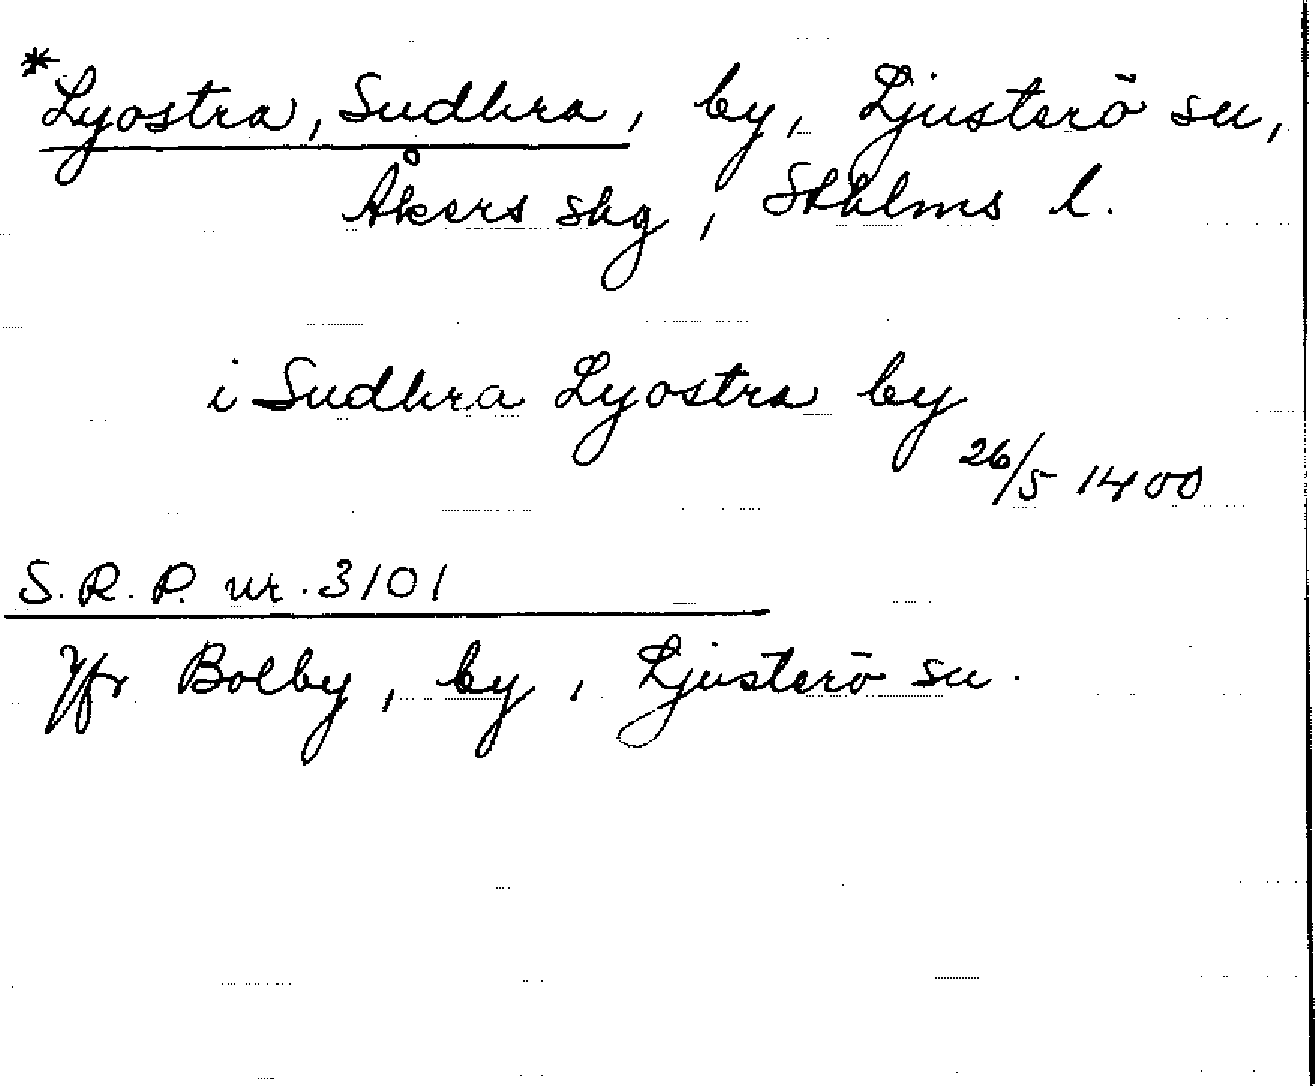 *Lyostra, Sudhra, by, Ljusterö sn,
Åkers skg, Sthlms l.
i Sudhra Lyostra by
26/5 1400
S.R.P. nr. 3101
Jfr Bolby, by, Ljusterö sn.